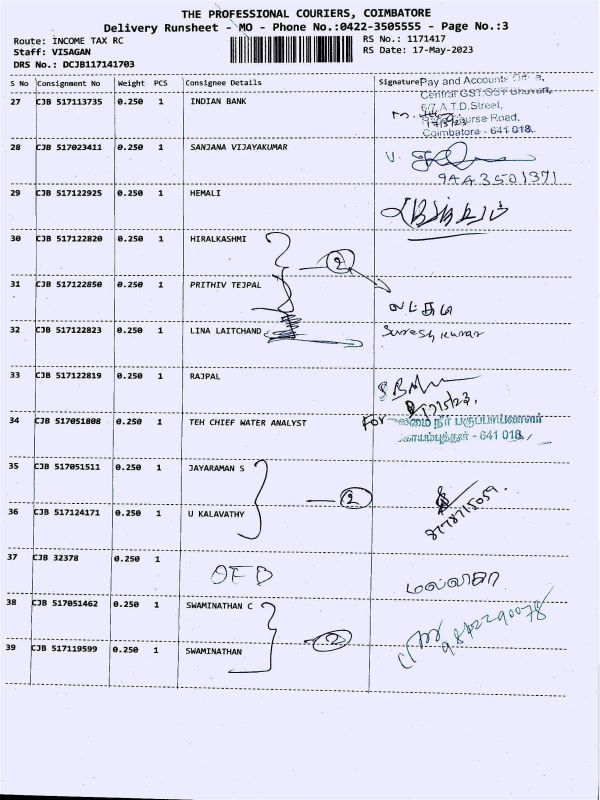 THE PROFESSIONAL COURIERS, COIMBATORE
Delivery Runsheet - MO - Phone No.:0422-3505555 - Page No.:3
Route: INCOME TAX RC
RS No.: 1171417
Staff: VISAGAN
RS Date: 17-May-2023
DRS No.: DCJB117141703
S No Consignment No Weight PCS Consignee Details Signature
Pay and Accounts
Central GST,GST Bhavan,
27 CJB 517113735 0.250 1 INDIAN BANK
6/7 A.T.D.Street,
Course Road,
Coimbatore - 641 018.
28 CJB 517023411 0.250 1 SANJANA VIJAYAKUMAR
9443501371
29 CJB 517122925 0.250 1 HEMALI
30 CJB 517122820 0.250 1 HIRALKASHMI
2
31 CJB 517122850 0.250 1 PRITHIV TEJPAL
32 CJB 517122823 0.250 1 LINA LAITCHAND
Suresh Kumar
33 CJB 517122819 0.250 1 RAJPAL
34 CJB 517051808 0.250 1 TEH CHIEF WATER ANALYST
For
நீர் பகுப்பாய்வாளர்
கோயம்புத்தூர் - 641 018.
35 CJB 517051511 0.250 1 JAYARAMAN S
2
8778715059.
36 CJB 517124171 0.250 1 U KALAVATHY
37 CJB 32378 0.250 1
OFD
38 CJB 517051462 0.250 1 SWAMINATHAN C
9842290078
2
39 CJB 517119599 0.250 1 SWAMINATHAN